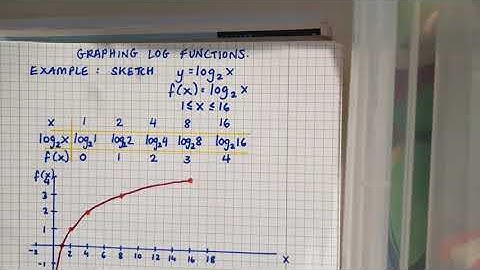 GRAPHING LOG FUNCTIONS.
EXAMPLE: SKETCH y=log₂x
f(x)=log₂x
1≤x≤16
x 1 2 4 8 16
log₂x log₂1 log₂2 log₂4 log₂8 log₂16
f(x) 0 1 2 3 4
f(x)
4
3
2
1
-2 2 4 6 8 10 12 14 16 18 x
-1